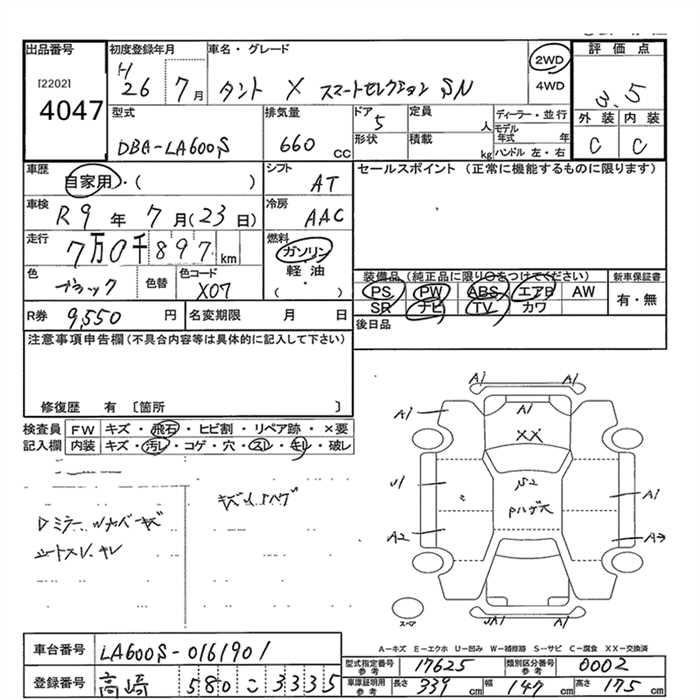 出品番号
[2202]
4047
初度登録年月
H
26 7月
車名・グレード
タント X スマートセレクション SN
2WD
4WD
評価点
3.5
外装 内装
C C
型式
DBA-LA600S
排気量
660 cc
ドア 5
形状
定員 人
積載 kg
ディーラー・並行
モデル年式 年
ハンドル 左・右
車歴
自家用・( )
シフト
AT
セールスポイント (正常に機能するものに限ります)
車検
R9年 7月(23日)
冷房
AAC
走行
7万0千897 km
燃料
ガソリン
軽油
・( )
色
ブラック
色替
色コード
X07
装備品(純正品に限り○をつけてください)
PS PW ABS エアB AW
SR ナビ TV カワ
新車保証書
有・無
R券 9,550 円
名変期限 月 日
後日品
注意事項申告欄(不具合内容等は具体的に記入して下さい)
修復歴 有 〔箇所 〕
検査員記入欄
FW キズ・飛石・ヒビ割・リペア跡・×要
内装 キズ・汚レ・コゲ・穴・スレ・キレ・破レ
Dミラー
A1 A1
A1 A1
XX
U1 A1
Pハゲ大
A2
スペア
A-キズ E-エクボ U-凹み W-補修跡 S-サビ C-腐食 XX-交換済
車台番号 LA600S-0161901
登録番号 高崎 580 こ 3335
型式指定番号 参考 17625
類別区分番号 参考 0002
車庫証明用 参考 長さ 339 幅 147 高さ 175 cm